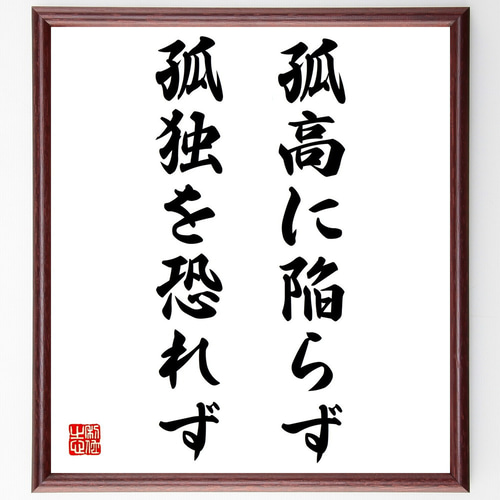 孤高に陥らず
孤独を恐れず